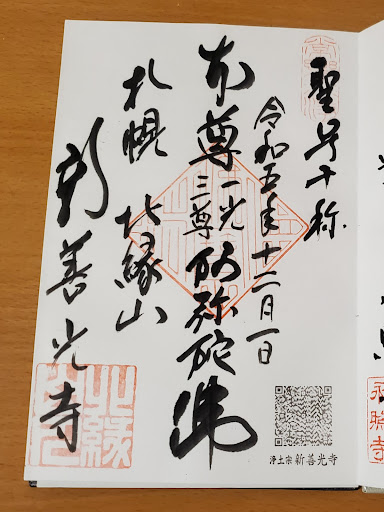 聖号十称
令和五年十二月一日
本尊 一光三尊 阿弥陀佛
札幌 北縁山
新善光寺
浄土宗 新善光寺
北縁
永照寺